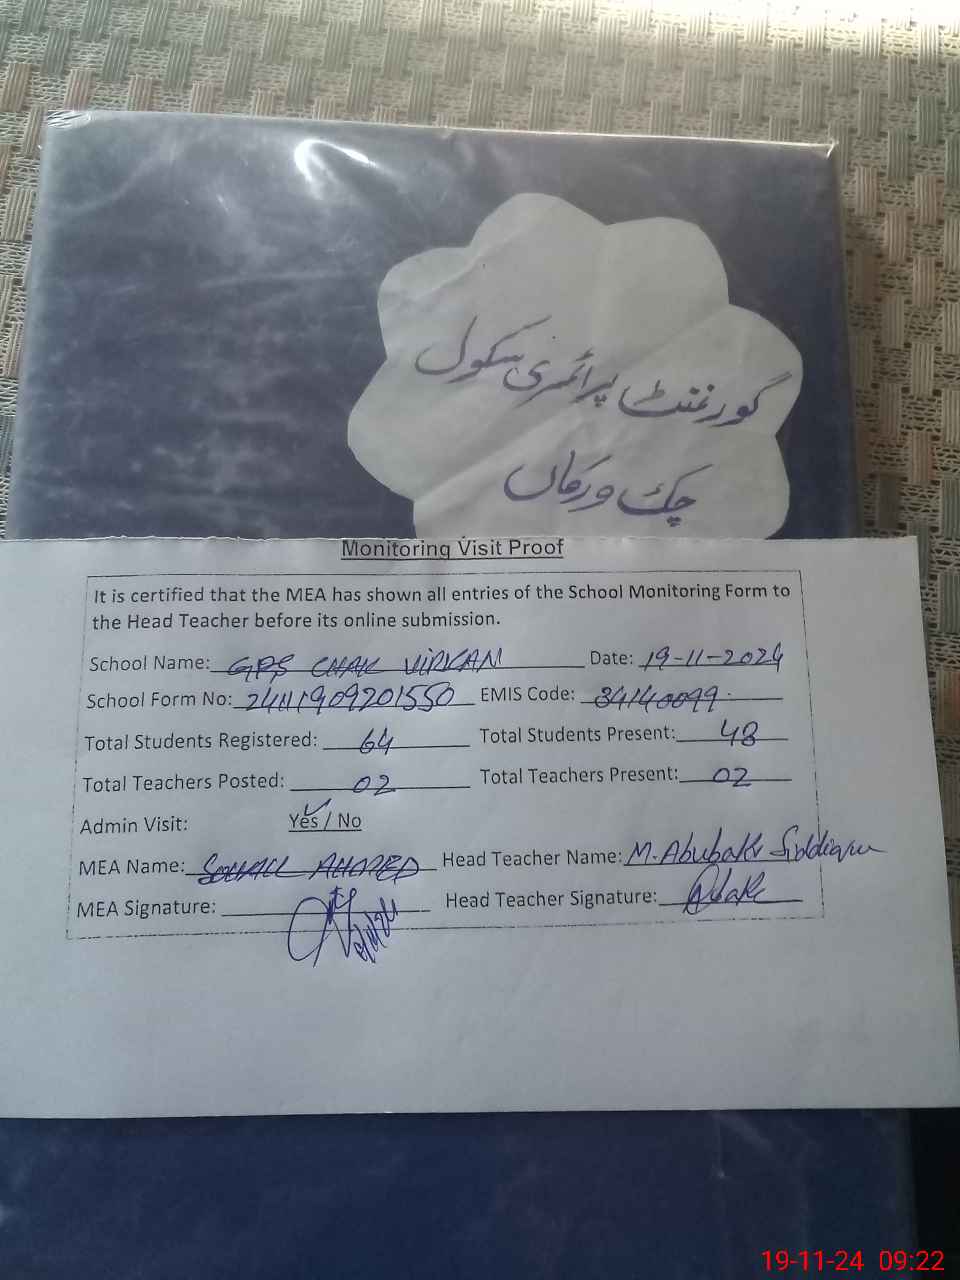 گورنمنٹ پرائمری سکول
چک ورکاں
Monitoring Visit Proof
It is certified that the MEA has shown all entries of the School Monitoring Form to
the Head Teacher before its online submission.
School Name: GPS CHAK VIRKAN Date: 19-11-2024
School Form No: 24111909201550 EMIS Code: 34140099
Total Students Registered: 64 Total Students Present: 48
Total Teachers Posted: 02 Total Teachers Present: 02
Admin Visit: Yes / No
MEA Name: SOHAIL AHMED Head Teacher Name: M. Abubakr Siddique
MEA Signature: Head Teacher Signature:
19-11-24 09:22